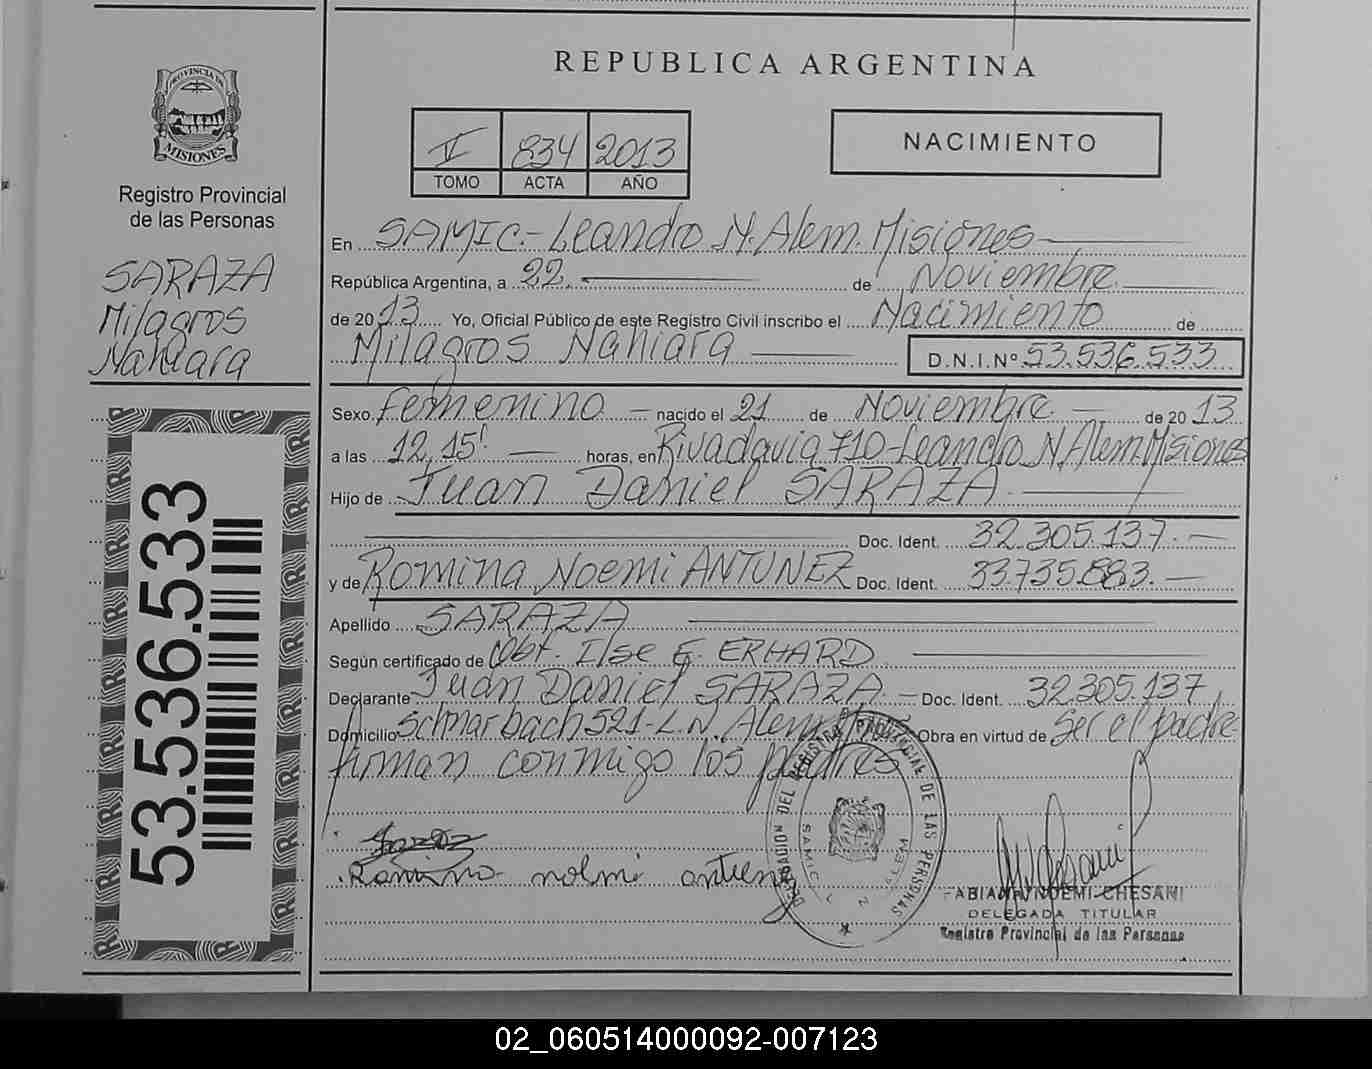 REPUBLICA ARGENTINA
PROVINCIA DE
MISIONES
Registro Provincial
de las Personas
SARAZA
Milagros
Nahiara
53.536.533
II 834 2013
TOMO ACTA AÑO
NACIMIENTO
En SAMIC.- Leandro N. Alem. Misiones
República Argentina, a 22. de Noviembre
de 2013 Yo, Oficial Público de este Registro Civil inscribo el Nacimiento de
Milagros Nahiara D.N.I.Nº 53.536.533
Sexo Femenino nacido el 21 de Noviembre de 2013
a las 12,15' horas, en Rivadavia 710-Leandro N. Alem Misiones
Hijo de Juan Daniel SARAZA
Doc. Ident. 32.305.137.
y de Romina Noemi ANTUNEZ Doc. Ident. 33.735.883.
Apellido SARAZA
Según certificado de Obt. Ilse E. ERHARD
Declarante Juan Daniel SARAZA. Doc. Ident. 32.305.137
Domicilio 521-L.N. Alem Obra en virtud de Ser el padre
firman conmigo los padres
Romina noemi
DELEGACION DEL REGISTRO PROVINCIAL DE LAS PERSONAS
SAMIC L. N. ALEM
FABIANA NOEMI CHESANI
DELEGADA TITULAR
Registro Provincial de las Personas
02_060514000092-007123